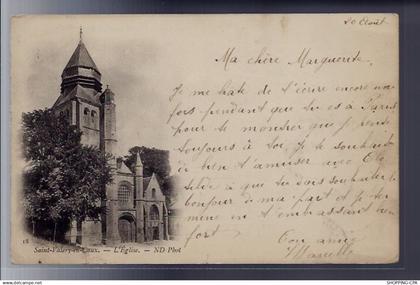 20 Août
Ma chère Marguerite,
Je me hate de t'écrire encore une
fois pendant que tu es à Paris
pour te montrer que je pense
toujours à toi, Je te souhaite
de bien t'amuser avec
à que tu dois souhaiter le
bonjour de ma part et je ter-
mine en t'embrassant bien
fort
Ton amie
Marcelle
18 Saint-Valery-en-Caux. — L'Église. — ND Phot
www.SHOPNCO.com